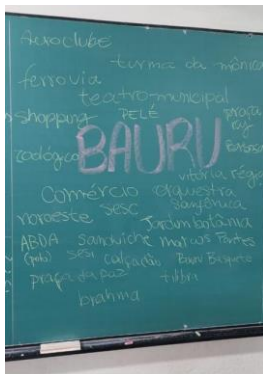 Aeroclube
turma da mônica
ferrovia
teatro municipal
shopping PELÉ praça
zoológico BAURU
vitória régia
Comércio orquestra
sinfônica
noroeste sesc
Jardim botânico
ABDA sanduíche marcos Pontes
sesi calçadão Bauru Basquete
praça da paz tilibra
brahma